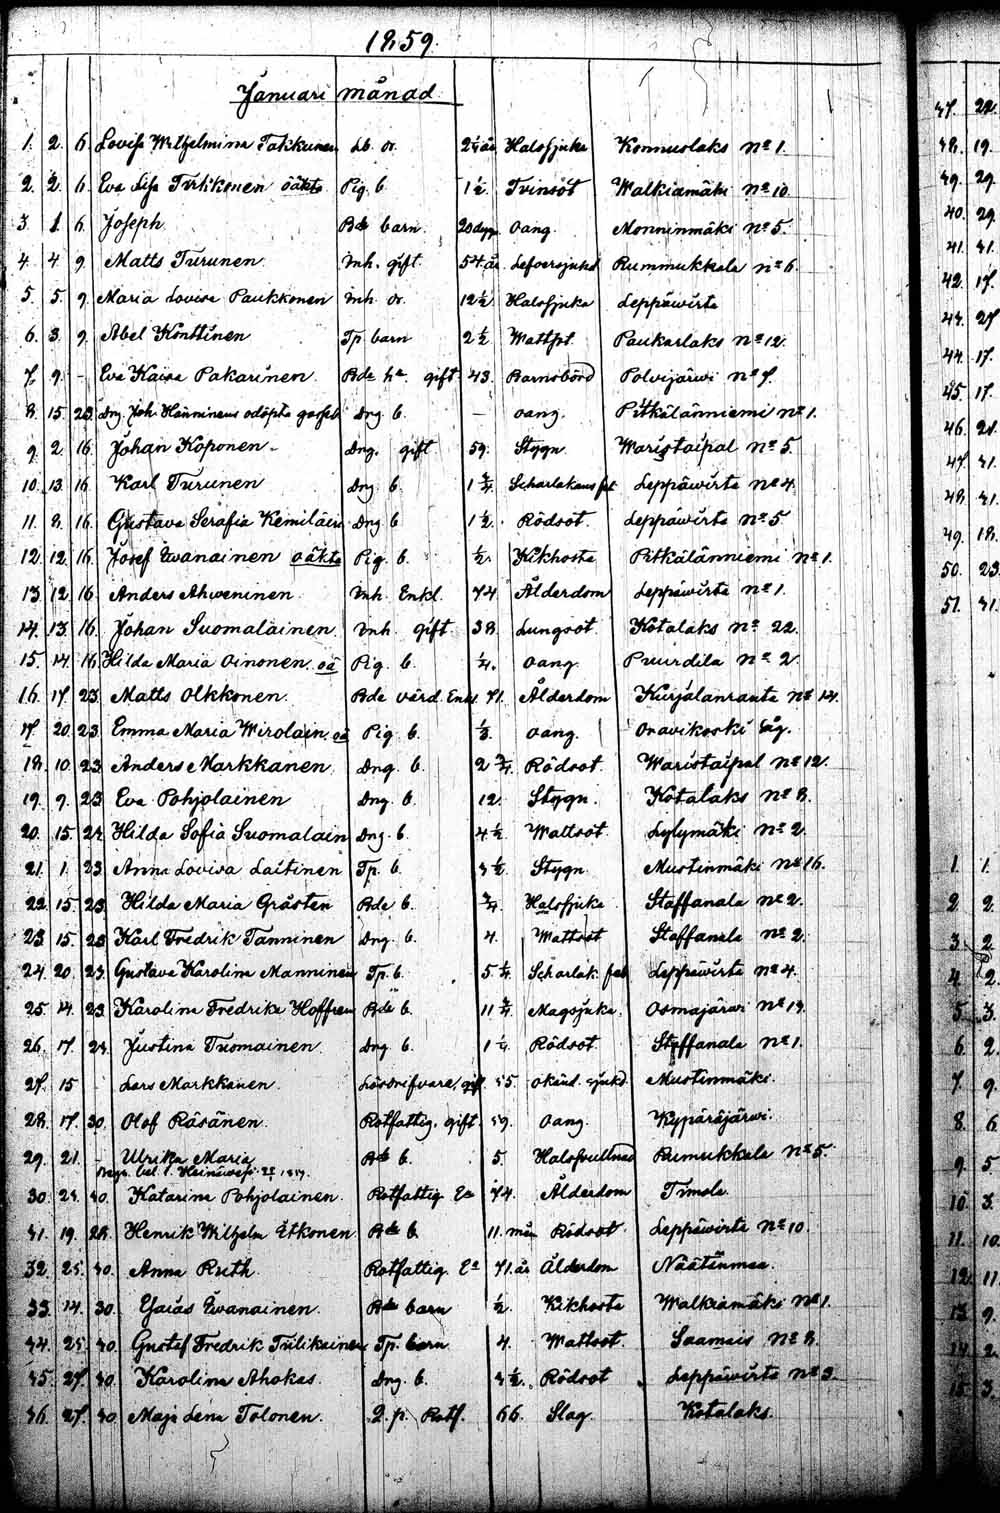 1859.
Januari månad.
1. 2. 6. Lovisa Wilhelmina Takkunen Lb. or. 2 1/4 år Halssjuka Konnuslaks No 1.
2. 2. 6. Eva Lisa Turkkonen oäkta Pig. b. 1 1/2. Tvinsot Walkiamäki No 10.
3. 1. 6. Joseph Bde barn. 20 dygn oang. Monninmäki No 5.
4. 4. 9. Matts Turunen inh. gift. 54 år Lefversjukd Rummukkala No 6.
5. 5. 9. Maria Lovisa Paukkonen inh. or. 12 1/2 Halssjuka Leppäwirta
6. 3. 9. Abel Konttinen Tp barn 2 1/2 Wattsot Paukarlaks No 12.
7. 9. - Eva Kaisa Pakarinen. Bde ha. gift 43. Barnsbörd Polvijärwi No 7.
8. 15. 23. Drg. Joh. Hänninens odöpta gosseb. Drg. b. — oang. Pitkälänniemi No 1.
9. 2. 16. Johan Koponen. Drg. gift 59. Stygn. Waristaipal No 5.
10. 13. 16. Karl Turunen Drg. b. 1 3/4. Scharlakansfeb. Leppäwirta No 4.
11. 8. 16. Gustava Serafia Kemiläin Drg. b 1 1/2. Rödsot. Leppäwirta No 5.
12. 12. 16. Josef Iwanainen oäkta Pig. b. 1/2. Kikhosta Pitkälänniemi No 1.
13. 12. 16. Anders Ahweninen. inh. Enkl. 74 Ålderdom Leppäwirta No 1.
14. 13. 16. Johan Suomalainen. inh. gift 38. Lungsot. Kotalaks No 22.
15. 14. 16. Hilda Maria Oinonen. oä Pig. b. 1/4. oang. Puurdila No 2.
16. 17. 23. Matts Olkkonen. Bde värd. Enkl. 71. Ålderdom Kurjalanranta No 14.
17. 20. 23. Emma Maria Wirolain. oä Pig. b. 1/3. oang. Oravikoski
18. 10. 23. Anders Markkanen. Drg. b. 2 3/4. Rödsot. Waristaipal No 12.
19. 9. 23. Eva Pohjolainen Drg. b. 12. Stygn. Kotalaks No 8.
20. 15. 24. Hilda Sofia Suomalain Drg. b. 4 1/2. Wattsot. Lylymäki No 2.
21. 1. 23. Anna Lovisa Laitinen Tp. b. 3 1/2. Stygn. Mustinmäki No 16.
22. 15. 23. Hilda Maria Gråsten Bde b. 3/4. Halssjuka Staffanala No 2.
23. 15. 23. Karl Fredrik Tanninen Drg. b. 4. Wattsot Staffanala No 2.
24. 20. 23. Gustava Karolina Manninen Tp. b. 5 1/4. Scharlak. feb Leppäwirta No 4.
25. 14. 23. Karolina Fredrika Hoffren Bde b. 11 3/4. Magsjuka. Osmajärwi No 14.
26. 17. 24. Justina Tuomainen. Drg. b. 1 1/4. Rödsot. Staffanala No 1.
27. 15 - Lars Markkanen. Lösdrifvare, gift. 55. okänd sjukd. Mustinmäki.
28. 17. 30. Olof Räsänen. Rotfattig. gift. 59. Oang. Kypäräjärwi.
29. 21. - Ulrika Maria Bde b. 5. Halssvullnad Rumukkala No 5.
30. 24. 30. Katarina Pohjolainen. Rotfattig Ea 74. Ålderdom Timola.
31. 19. 28. Henrik Wilhelm Itkonen. Bde b. 11. mån Rödsot. Leppäwirta No 10.
32. 25. 30. Anna Ruth. Rotfattig. Ea 71. år Ålderdom Näätinmaa.
33. 14. 30. Esaias Iwanainen. Bde barn 1/2. Kikhosta Walkiamäki No 1.
34. 25. 30. Gustaf Fredrik Tiilikainen Tp. barn 4. Wattsot. Saamais No 8.
35. 27. 30. Karolina Ahokas. Drg. b. 3 1/2. Rödsot Leppäwirta No 3.
36. 27. 30. Maja Lena Tolonen. Q. p. Rotf. 66. Slag. Kotalaks.